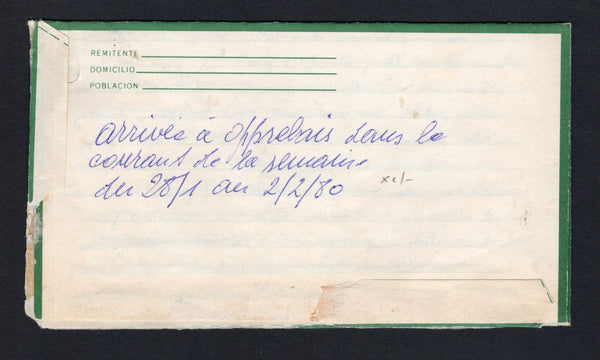 REMITENTE
DOMICILIO
POBLACION
arrivée à Opprebais dans le
courant de la semaine
du 28/1 au 2/2/80